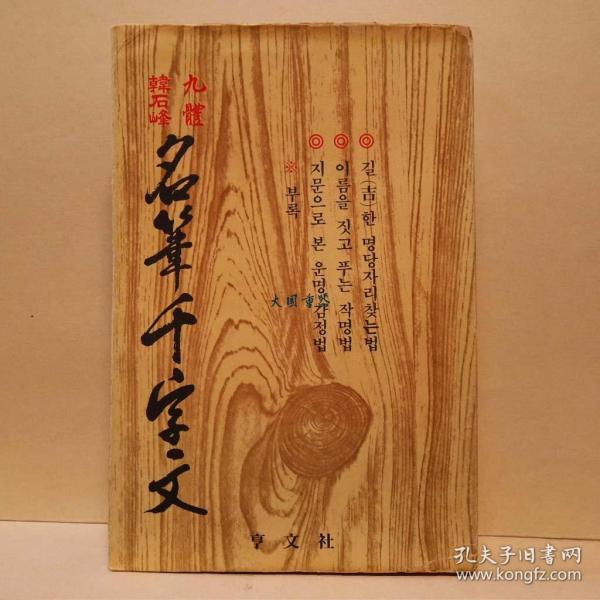 九體
韓石峰
名筆千字文
◎ 길(吉)한 명당자리찾는법
◎ 이름을 짓고 푸는 작명법
◎ 지문으로 본 운명감정법
※ 부록
亨文社
孔夫子旧书网
www.kongfz.com